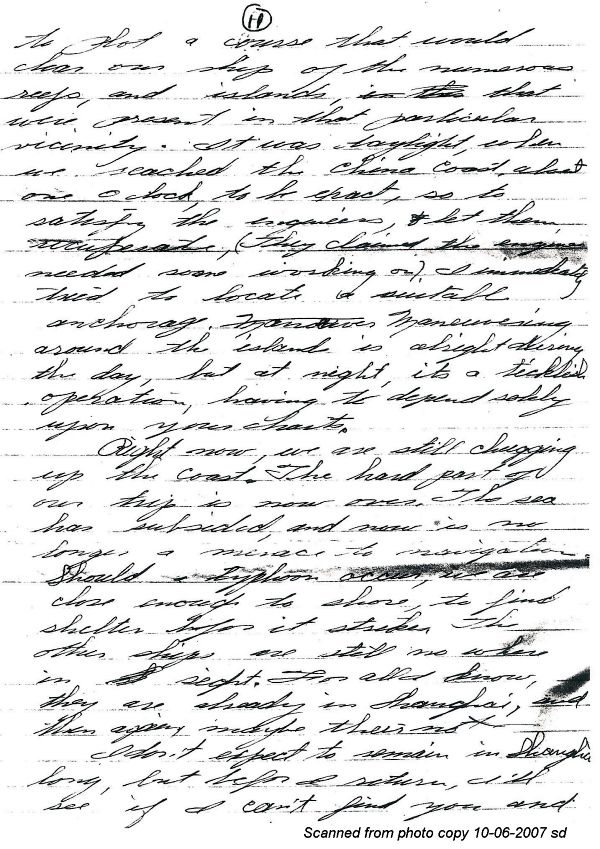 11
to plot a course that would
clear our ship of the numerous
reefs, and islands, in this that
were present in that particular
vicinity. It was daylight, when
we reached the China Coast, about
one o clock, to be exact, so to
satisfy the engineers, & let them
recuperate, (They claimed the engines
needed some working on), I immediately
tried to locate a suitable
anchorage. Maneuvering
around the island is alright during
the day, but at night, its a ticklish
operation, having to depend solely
upon your charts.
Right now, we are still chugging
up the coast. The hard part of
our trip is now over. The sea
has subsided, and now is no
longer a menace to navigation.
Should a typhoon occur, we are
close enough to shore, to find
shelter befor it strikes. The
other ships are still no where
in sight. For all I know,
they are already in Shanghai, and
then again maybe their not
I don't expect to remain in Shanghai
long, but befor I return, I'll
see if I can't find you and
Scanned from photo copy 10-06-2007 sd